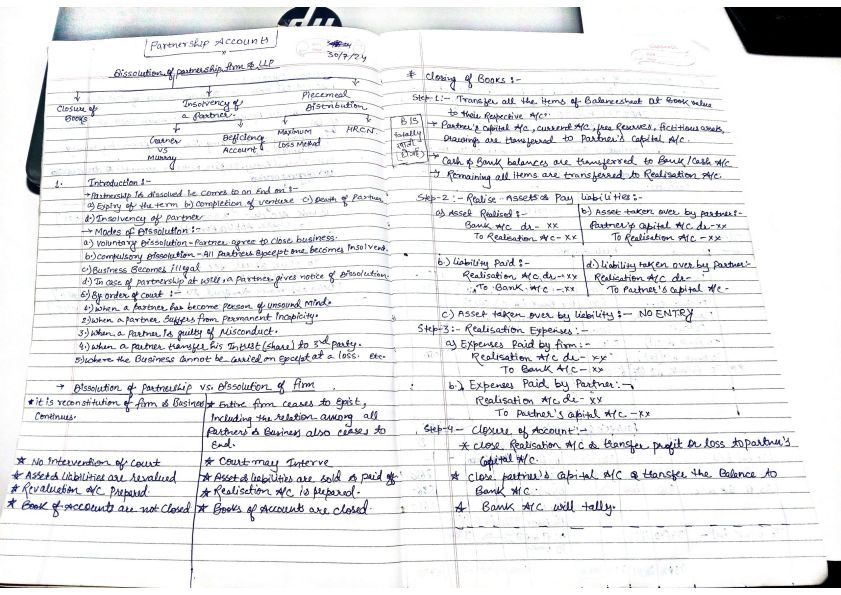 hp
Partnership Accounts
30/7/24
Dissolution of partnership firm & LLP
Closure of Books
Insolvency of a Partner.
Piecemeal Distribution
Garner vs Murray
Deficiency Account
Maximum Loss Method
H.R.C.N.
1. Introduction :-
→ Partnership is dissolved i.e comes to an End on :-
a) Expiry of the term b) Completion of venture c) Death of Partner
d) Insolvency of partner
→ Modes of Dissolution :-
a) Voluntary Dissolution - Partner agree to close business.
b) Compulsory Dissolution - All Partners Except one becomes Insolvent.
c) Business Becomes illegal
d) In case of partnership at will, a Partner gives notice of Dissolution.
e) By order of court :-
1.) When a Partner has become Person of unsound Mind.
2.) When a Partner Suffers from Permanent Incapicity.
3.) When a Partner is guilty of Misconduct.
4.) When a partner transfer his Intrest (share) to 3rd Party.
5) Where the Business Cannot be Carried on Except at a loss. etc.
→ Dissolution of Partnership vs. Dissolution of firm
* it is reconstitution of firm & Business Continues.
* Entire firm ceases to Exist, Including the relation among all Partners & Business also ceases to End.
* No Intervention of Court
* Court may Interve
* Asset & liabilities are revalued
* Asset & liabilities are sold & paid off
* Revaluation A/c Prepared.
* Realisation A/c is prepared.
* Book of Accounts are not Closed
* Books of Accounts are closed.
* Closing of Books :-
Step-1:- Transfer all the items of Balancesheet at Book value
to their Respective A/c.
B/S totally
→ Partner's Capital A/c, current A/c, free Reserves, fictitious assets,
Drawings are transferred to Partner's Capital A/c.
→ Cash & Bank balances are transferred to Bank/Cash A/c
→ Remaining all Items are transferred to Realisation A/c.
Step-2 :- Realise Assets & Pay liabilities :-
a) Asset Realised :-
Bank A/c dr- xx
To Realisation A/c - xx
b) Asset taken over by partner :-
Partner's Capital A/c dr- xx
To Realisation A/c - xx
b.) Liability Paid :-
Realisation A/c dr - xx
To Bank A/c - xx
d.) liability taken over by Partner:-
Realisation A/c dr -
To Partner's Capital A/c -
c) Asset taken over by liability :- NO ENTRY
Step-3:- Realisation Expenses :-
a) Expenses Paid by firm :-
Realisation A/c dr - xx
To Bank A/c - xx
b.) Expenses Paid by Partner :-
Realisation A/c dr - xx
To partner's Capital A/c - xx
Step-4- Closure of Account :-
* close Realisation A/c & transfer profit or loss to partner's
Capital A/c.
* Close partner's Capital A/c & transfer the Balance to
Bank A/c.
* Bank A/c will tally.